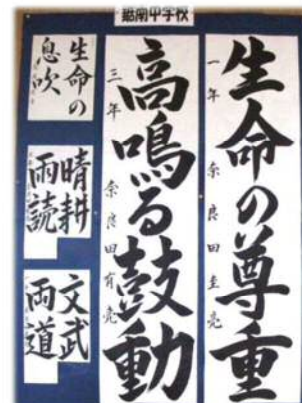 鋸南中学校
生命の尊重
一年 奈良田圭亮
高鳴る鼓動
三年 奈良田有亮
生命の
息吹
晴耕
雨読
文武
両道